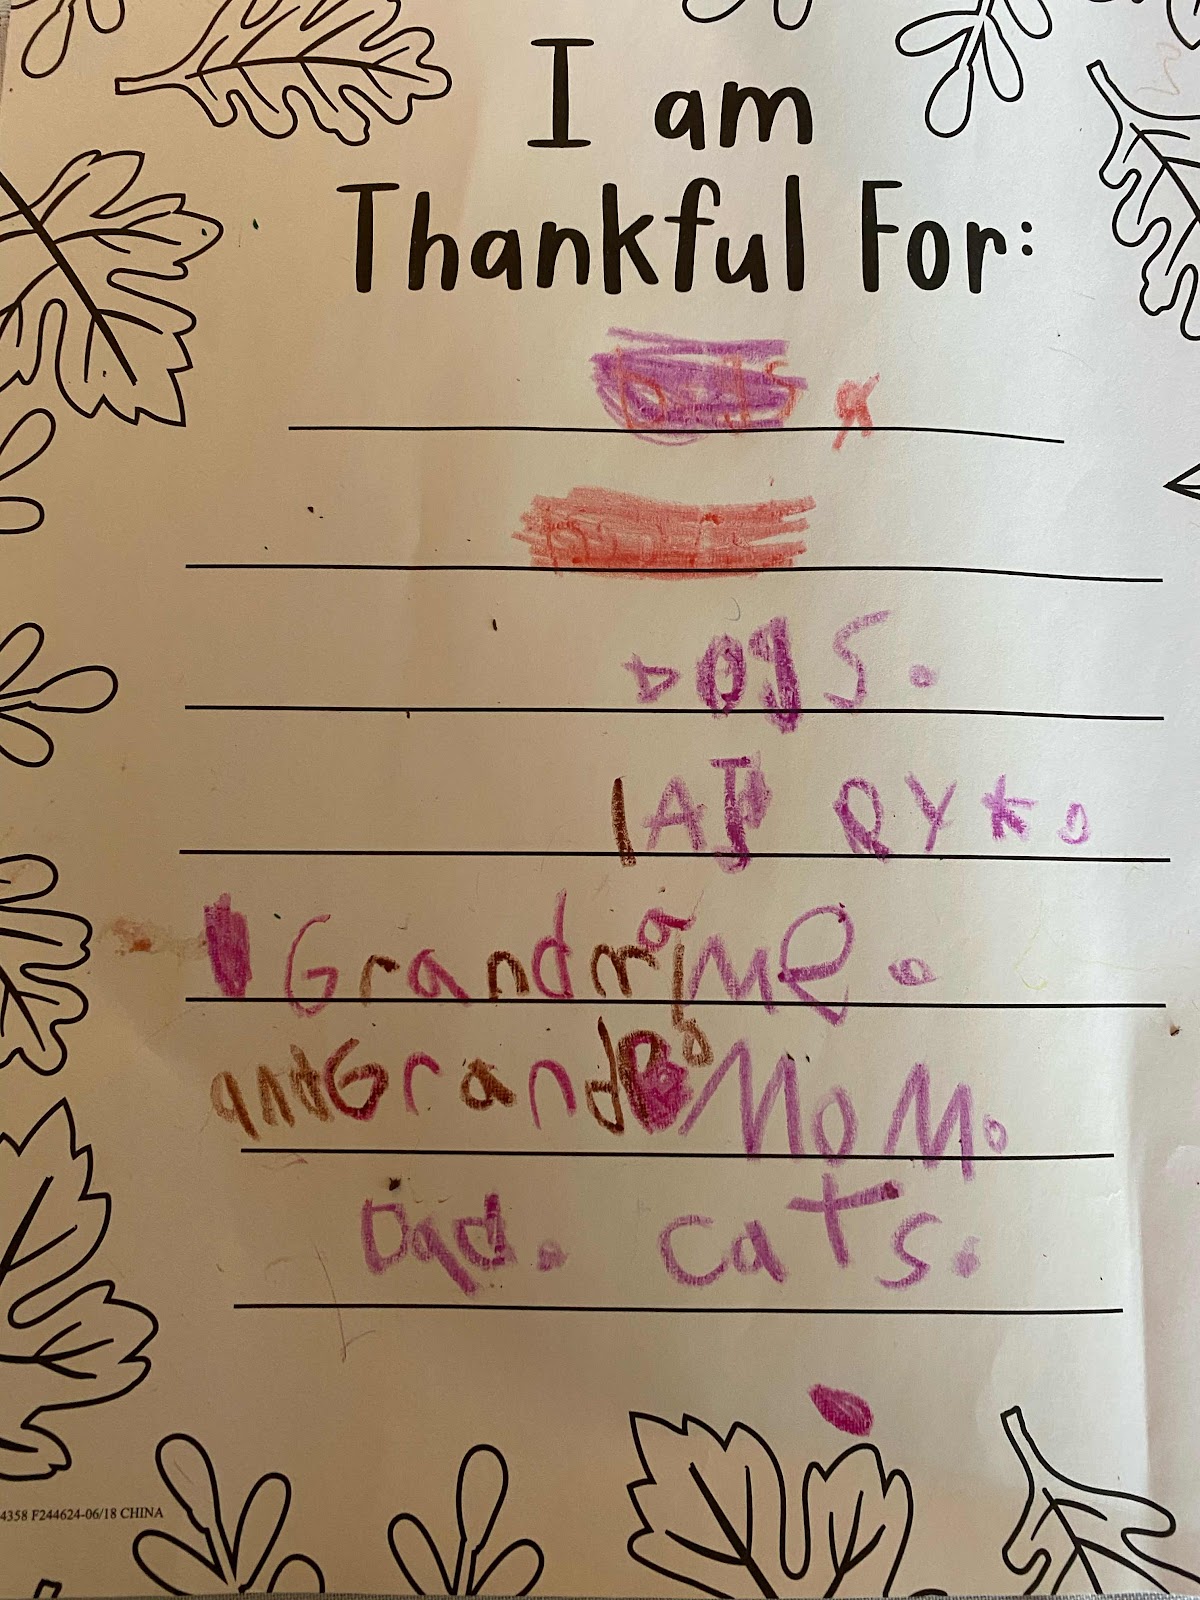 I am
Thankful For:
Dogs.
RYK.
Grandma, Me.
and Grand Mom.
Dad. Cats.
4358 F244624-06/18 CHINA